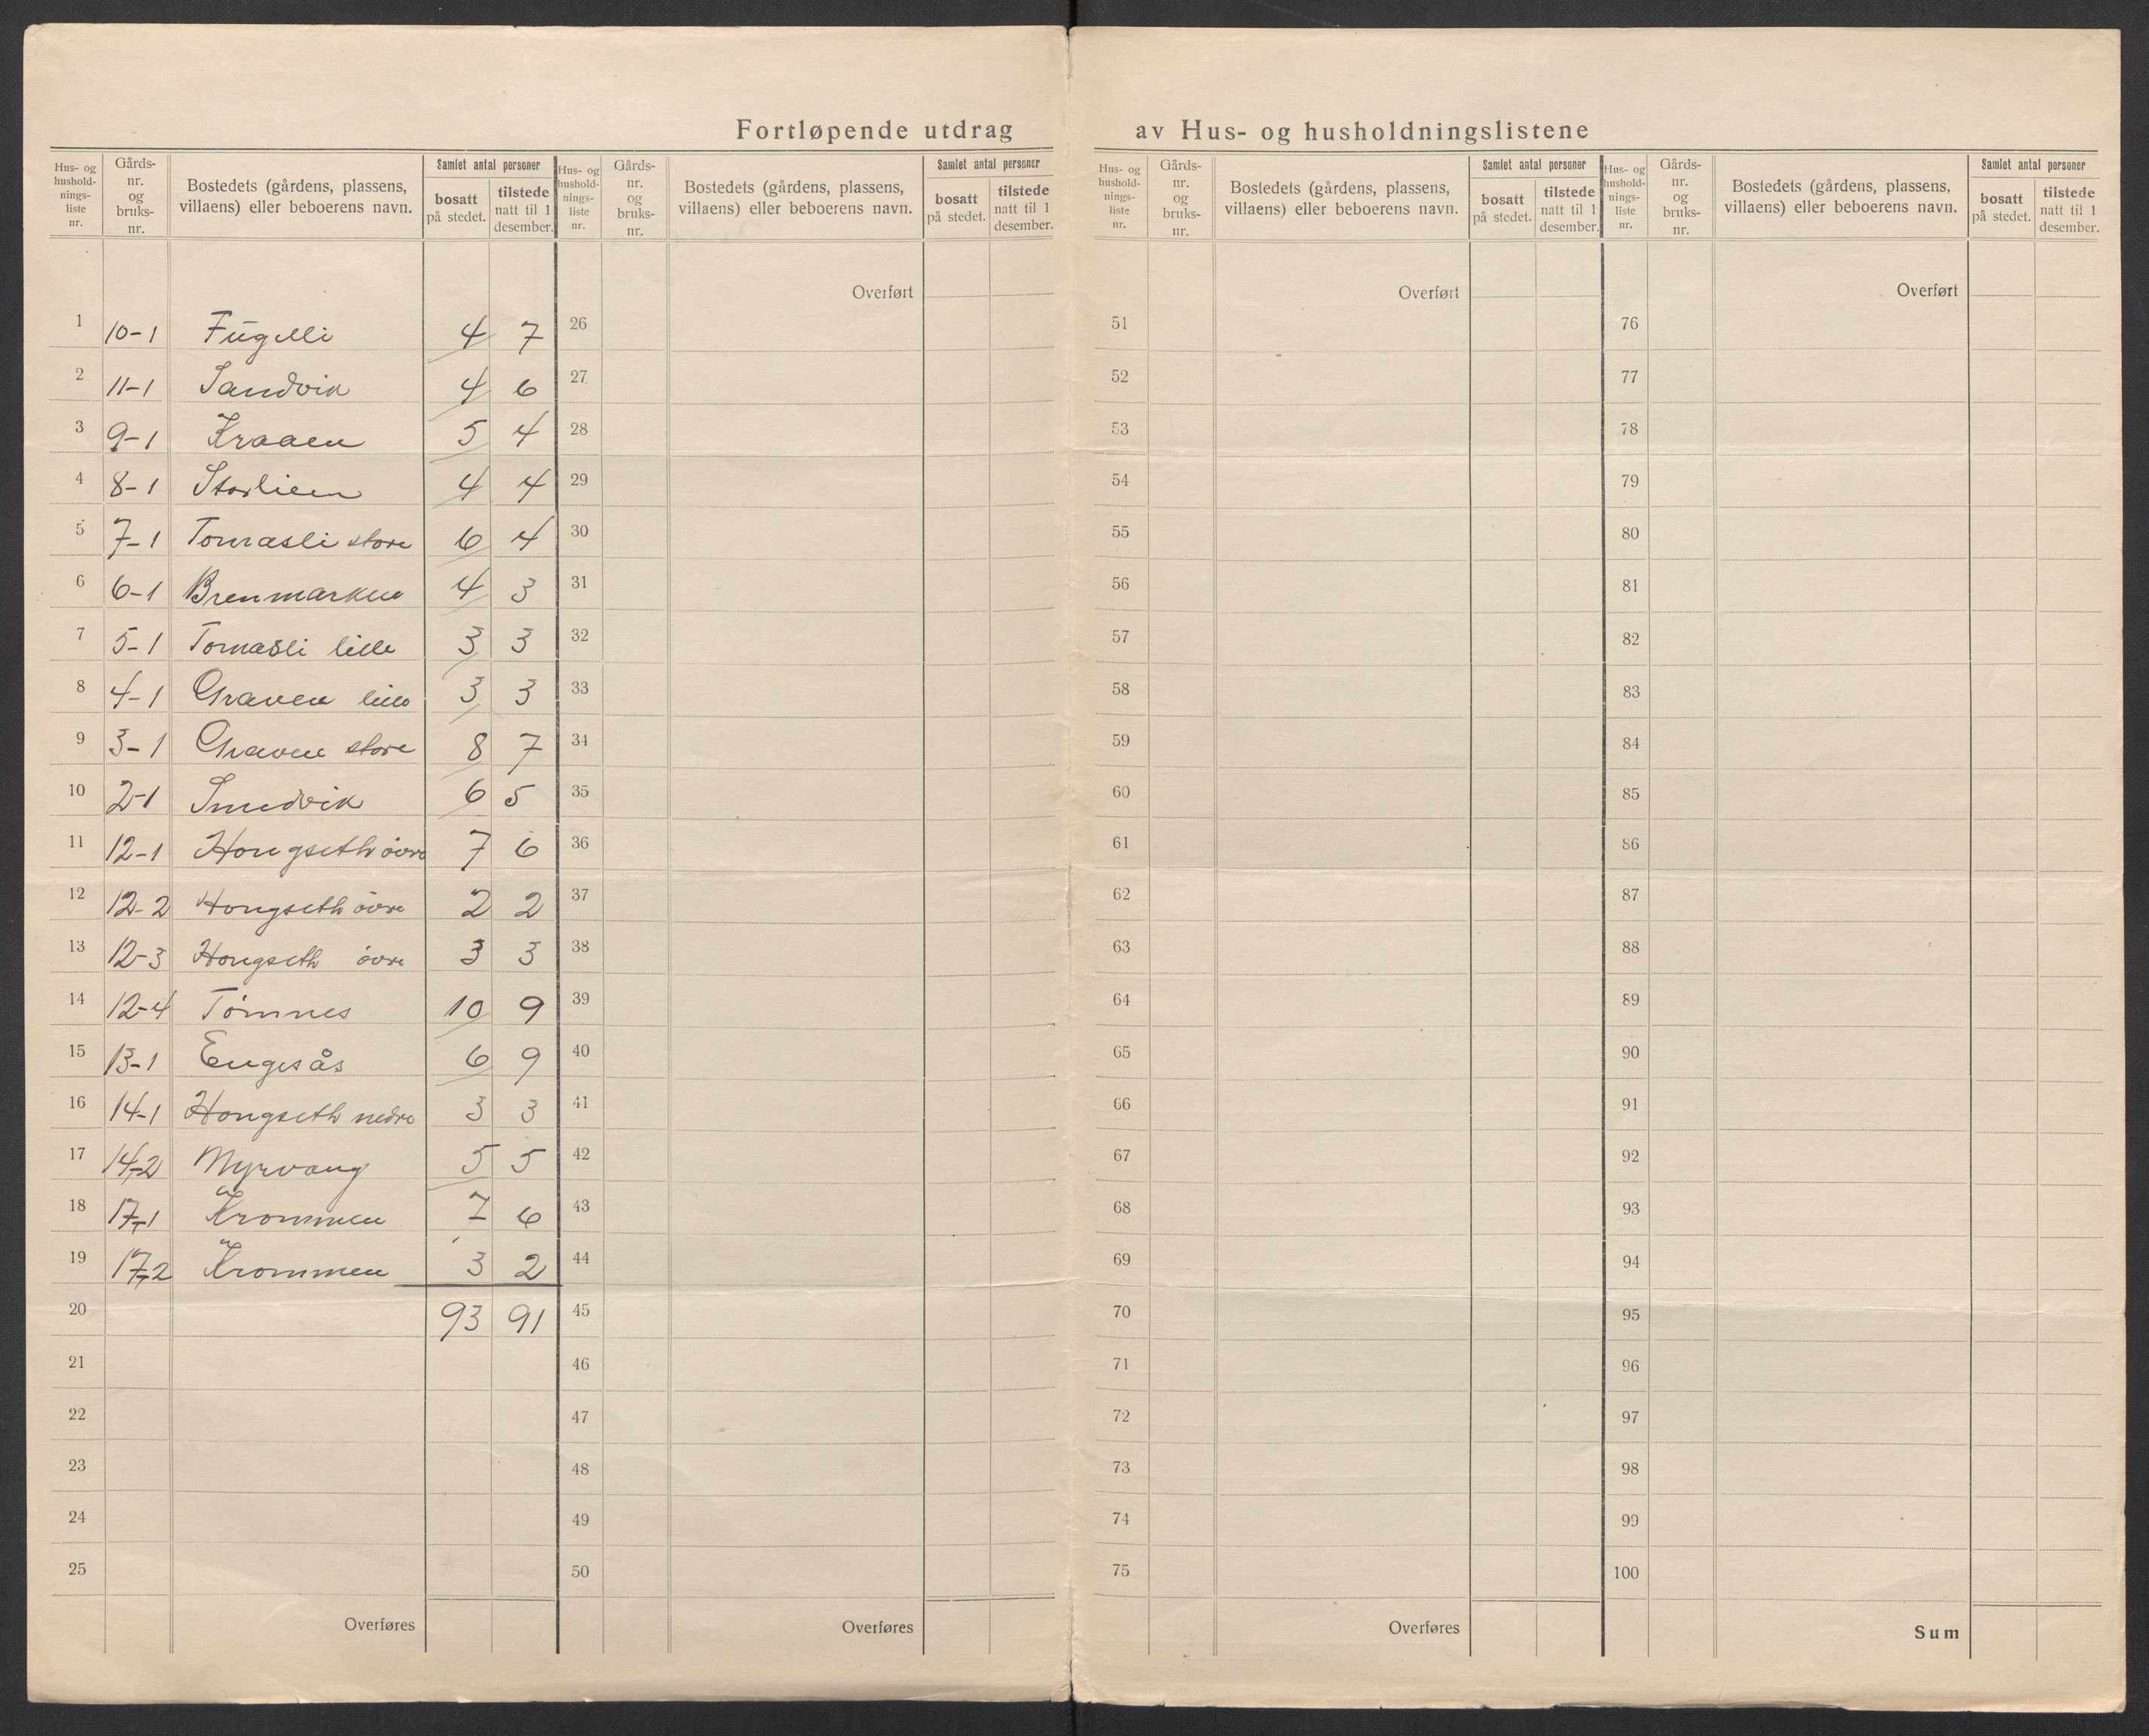 Fortløpende utdrag av Hus- og husholdningslistene
Hus- og husholdnings-liste nr. | Gårds-nr. og bruks-nr. | Bostedets (gårdens, plassens, villaens) eller beboerens navn. | Samlet antal personer | bosatt på stedet. | tilstede natt til 1 desember.
1 10-1 Fugelli 4 7
2 11-1 Sandvik 4 6
3 9-1 Kraaen 5 4
4 8-1 Storlien 4 4
5 7-1 Tomasli store 6 4
6 6-1 Brenmarken 4 3
7 5-1 Tomasli lille 3 3
8 4-1 Graven lille 3 3
9 3-1 Graven store 8 7
10 2-1 Smedvik 6 5
11 12-1 Hongseth övre 7 6
12 12-2 Hongseth övre 2 2
13 12-3 Hongseth övre 3 3
14 12-4 Tömnes 10 9
15 13-1 Engesås 6 9
16 14-1 Hongseth nedre 3 3
17 14-2 Myrvang 5 5
18 17-1 Krommen 7 6
19 17-2 Krommen 3 2
20 93 91
21
22
23
24
25
Overføres
Hus- og husholdnings-liste nr. | Gårds-nr. og bruks-nr. | Bostedets (gårdens, plassens, villaens) eller beboerens navn. | Samlet antal personer | bosatt på stedet. | tilstede natt til 1 desember.
Overført
26
27
28
29
30
31
32
33
34
35
36
37
38
39
40
41
42
43
44
45
46
47
48
49
50
Overføres
Hus- og husholdnings-liste nr. | Gårds-nr. og bruks-nr. | Bostedets (gårdens, plassens, villaens) eller beboerens navn. | Samlet antal personer | bosatt på stedet. | tilstede natt til 1 desember.
Overført
51
52
53
54
55
56
57
58
59
60
61
62
63
64
65
66
67
68
69
70
71
72
73
74
75
Overføres
Hus- og husholdnings-liste nr. | Gårds-nr. og bruks-nr. | Bostedets (gårdens, plassens, villaens) eller beboerens navn. | Samlet antal personer | bosatt på stedet. | tilstede natt til 1 desember.
Overført
76
77
78
79
80
81
82
83
84
85
86
87
88
89
90
91
92
93
94
95
96
97
98
99
100
Sum